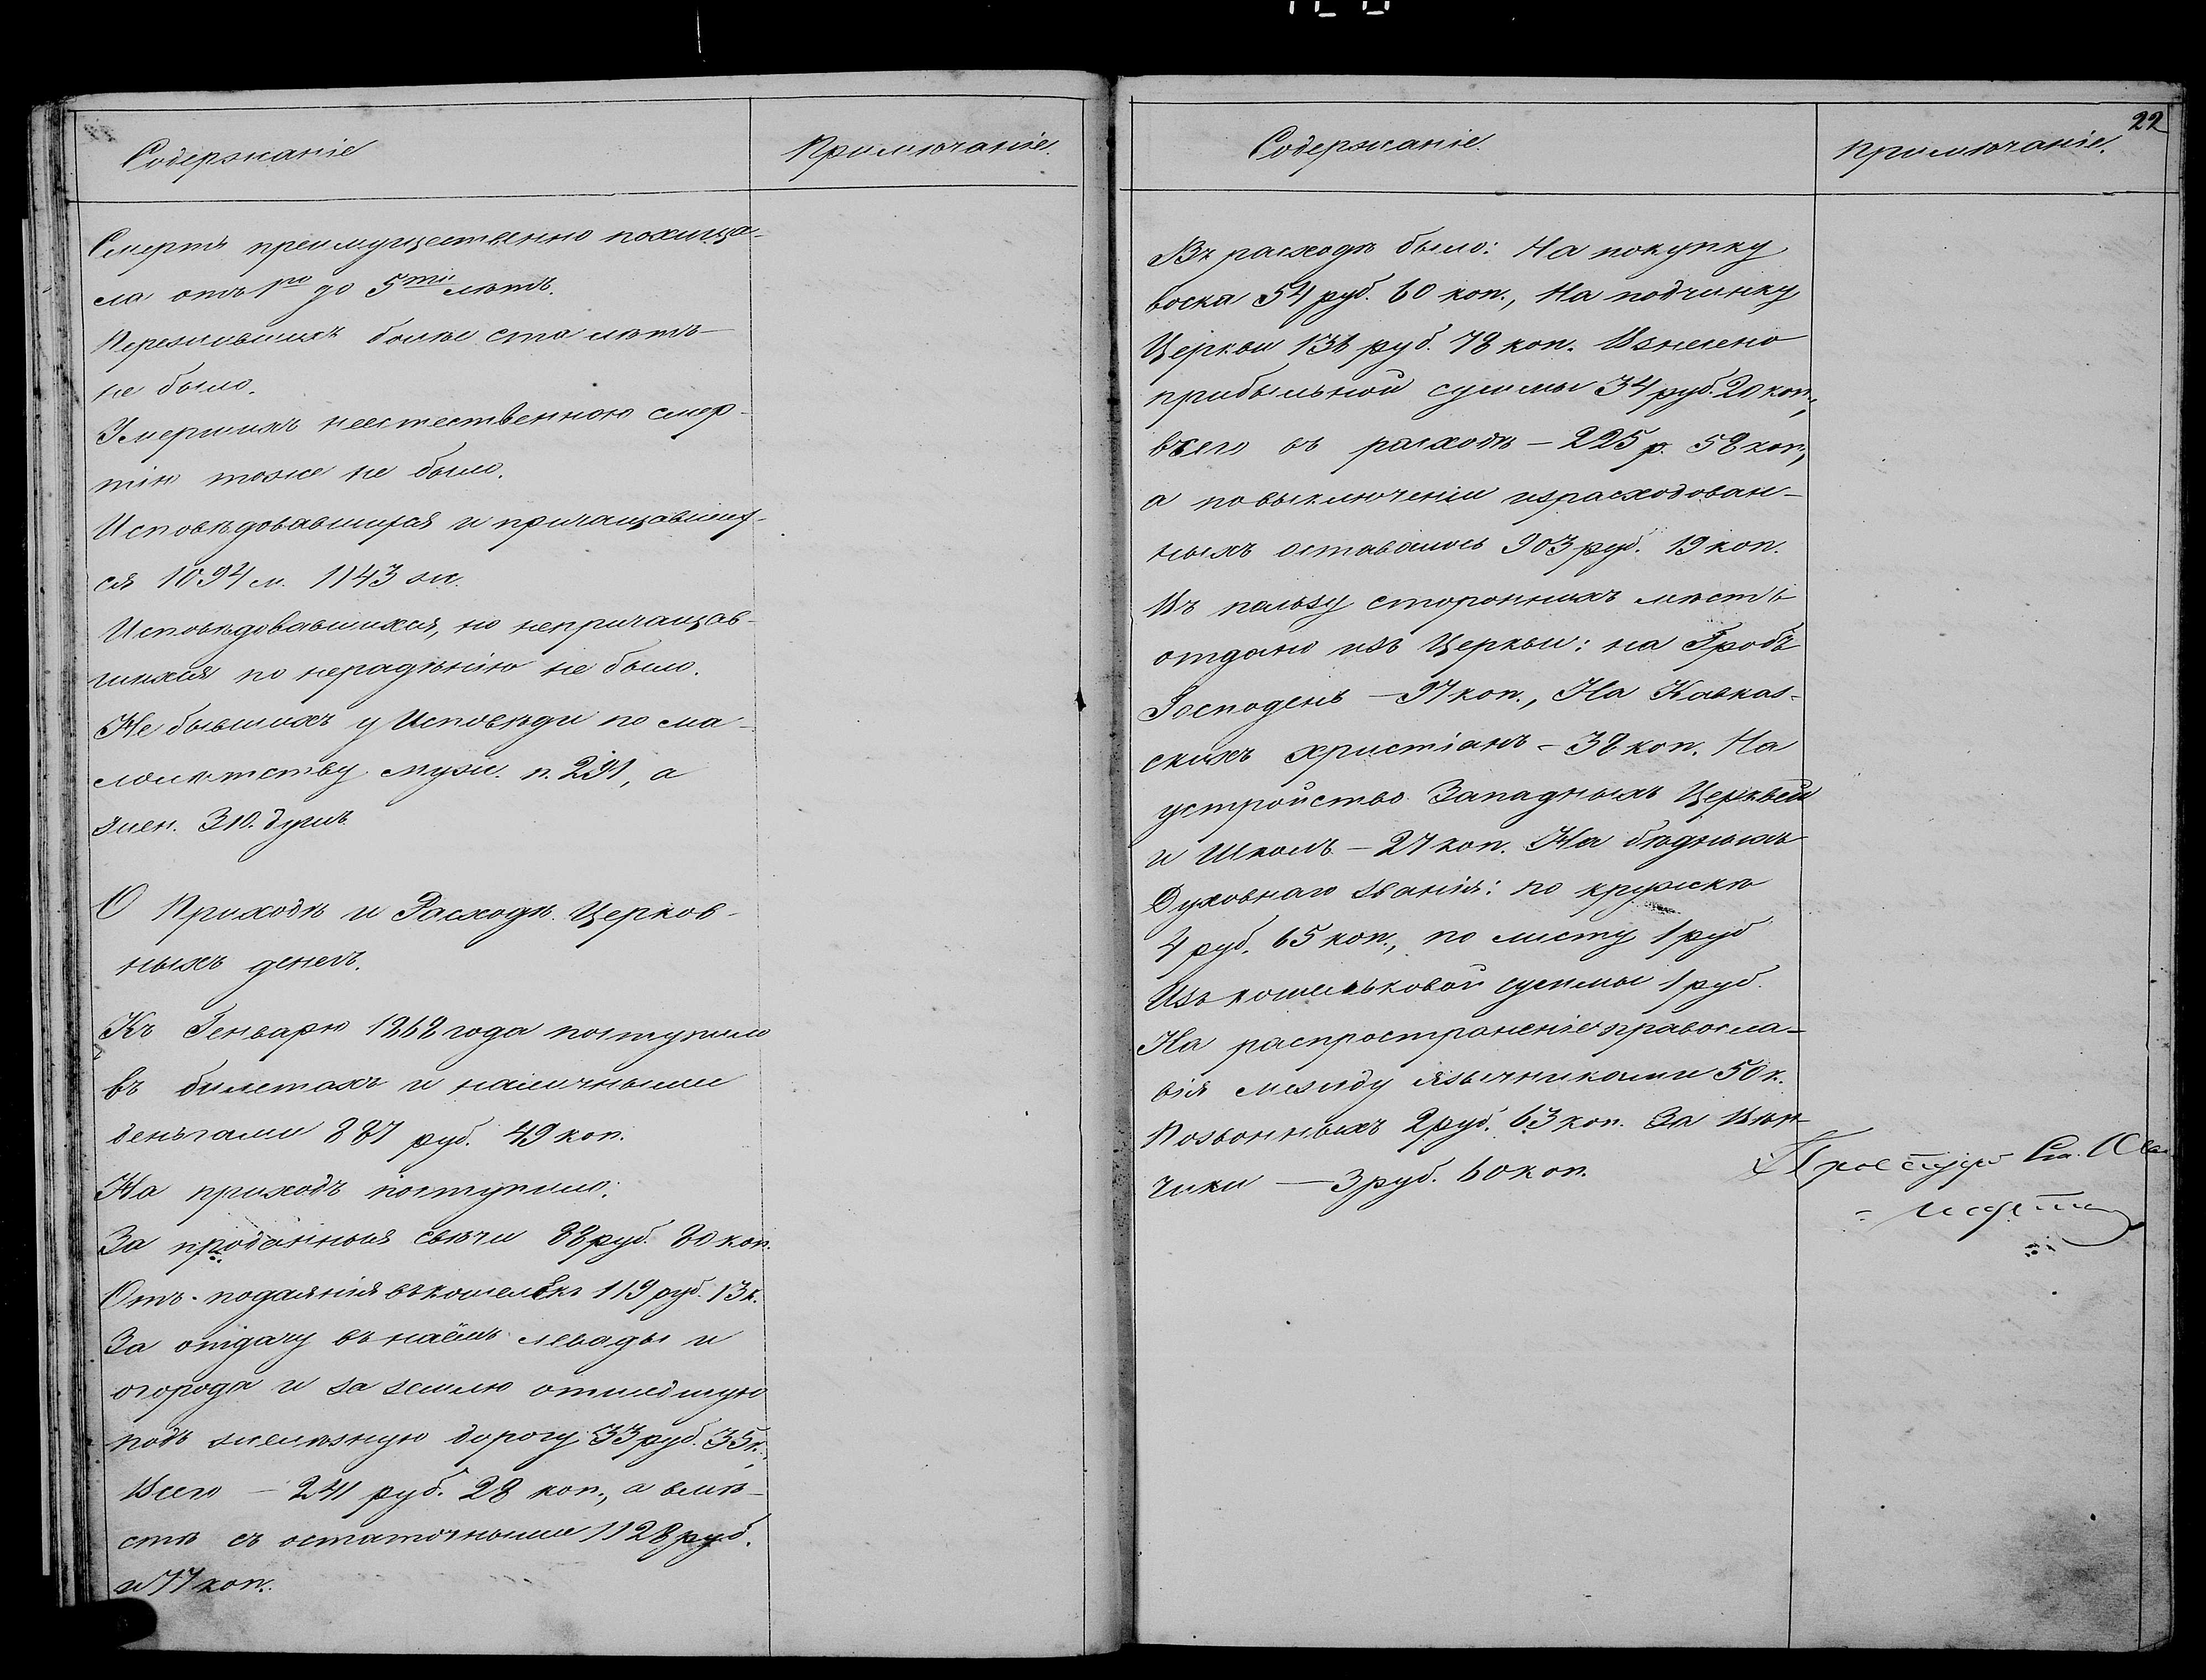 Содержаніе
Примѣчаніе.
Смерть преимущественно похища-
ла отъ 1го до 5ти лѣтъ.
Пережившихъ болѣе ста лѣтъ
не было.
Умершихъ неестественною смер-
тію тоже не было.
Исповѣдовавшихся и причащавших-
ся 1094 м. 1143 ж.
Исповѣдовавшихся, но непричащав-
шихся по нерадѣнію не было.
Не бывшихъ у Исповѣди по ма-
лолѣтству муж. п. 291, а
жен. 310. душъ
О Приходѣ и Расходѣ Церков-
ныхъ денегъ.
Къ Генварю 1868 года поступило
въ билетахъ и наличными
деньгами 887 руб. 49 коп.
На приходъ поступило:
За проданныя свѣчи 88 руб. 80 коп.
Отъ подаянія въ кошелёкъ 119 руб. 13 к.
За отдачу въ наёмъ левады и
огорода и за землю отшедшую
подъ желѣзную дорогу 33 руб. 35 к.,
Всего – 241 руб. 28 коп., а вмѣ-
стѣ съ остаточными 1128 руб.
и 77 коп.
22
Содержаніе.
Примѣчаніе.
Въ расходѣ было: На покупку
воска 54 руб. 60 коп., На подчинку
Церкви 136 руб. 78 коп. Взнесено
прибыльной суммы 34 руб. 20 коп.,
всего въ расходѣ – 225 р. 58 коп.,
а по выключеніи израсходован-
ныхъ оставалось 903 руб. 19 коп.
Въ пользу стороннихъ мѣстъ
отдано изъ Церкви: на Гробъ
Господень – 97 коп., На Кавказ-
скихъ христіанъ – 38 коп. На
устройство Западныхъ Церквей
и Школъ – 27 коп. На бѣдныхъ
Духовнаго званія: по кружкѣ
4 руб. 65 коп., по листу 1 руб
Изъ кошельковой суммы 1 руб.
На распространеніе правосла-
вія между язычниками 50 к.
Позвонныхъ 2 руб. 63 коп. За Вѣн-
чики – 3 руб. 60 коп.